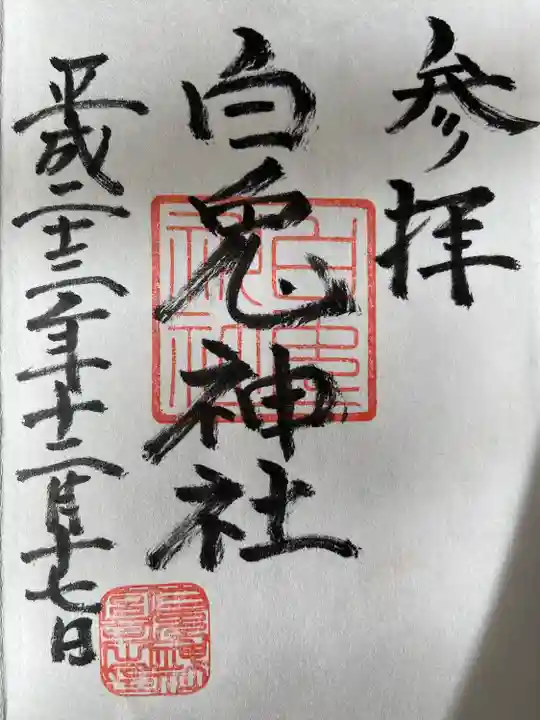 参拝
白兎神社
平成二十二年十二月十七日